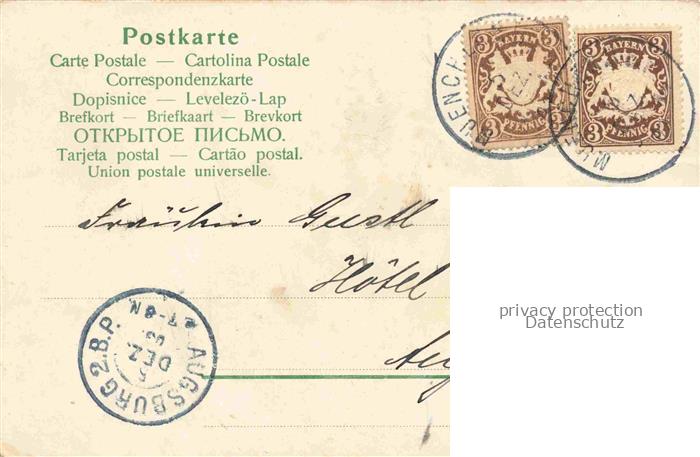 Postkarte
Carte Postale — Cartolina Postale
Correspondenzkarte
Dopisnice — Levelezö-Lap
Brefkort — Briefkaart — Brevkort
ОТКРЫТОЕ ПИСЬМО.
Tarjeta postal — Cartão postal.
Union postale universelle.
3 BAYERN 3
3 PFENNIG 3
3 BAYERN 3
3 PFENNIG 3
MUENCHEN
Fräulein Gustl
Hôtel
privacy protection
Datenschutz
AUGSBURG 2.B.P.
5
DEZ
03
7-8N.